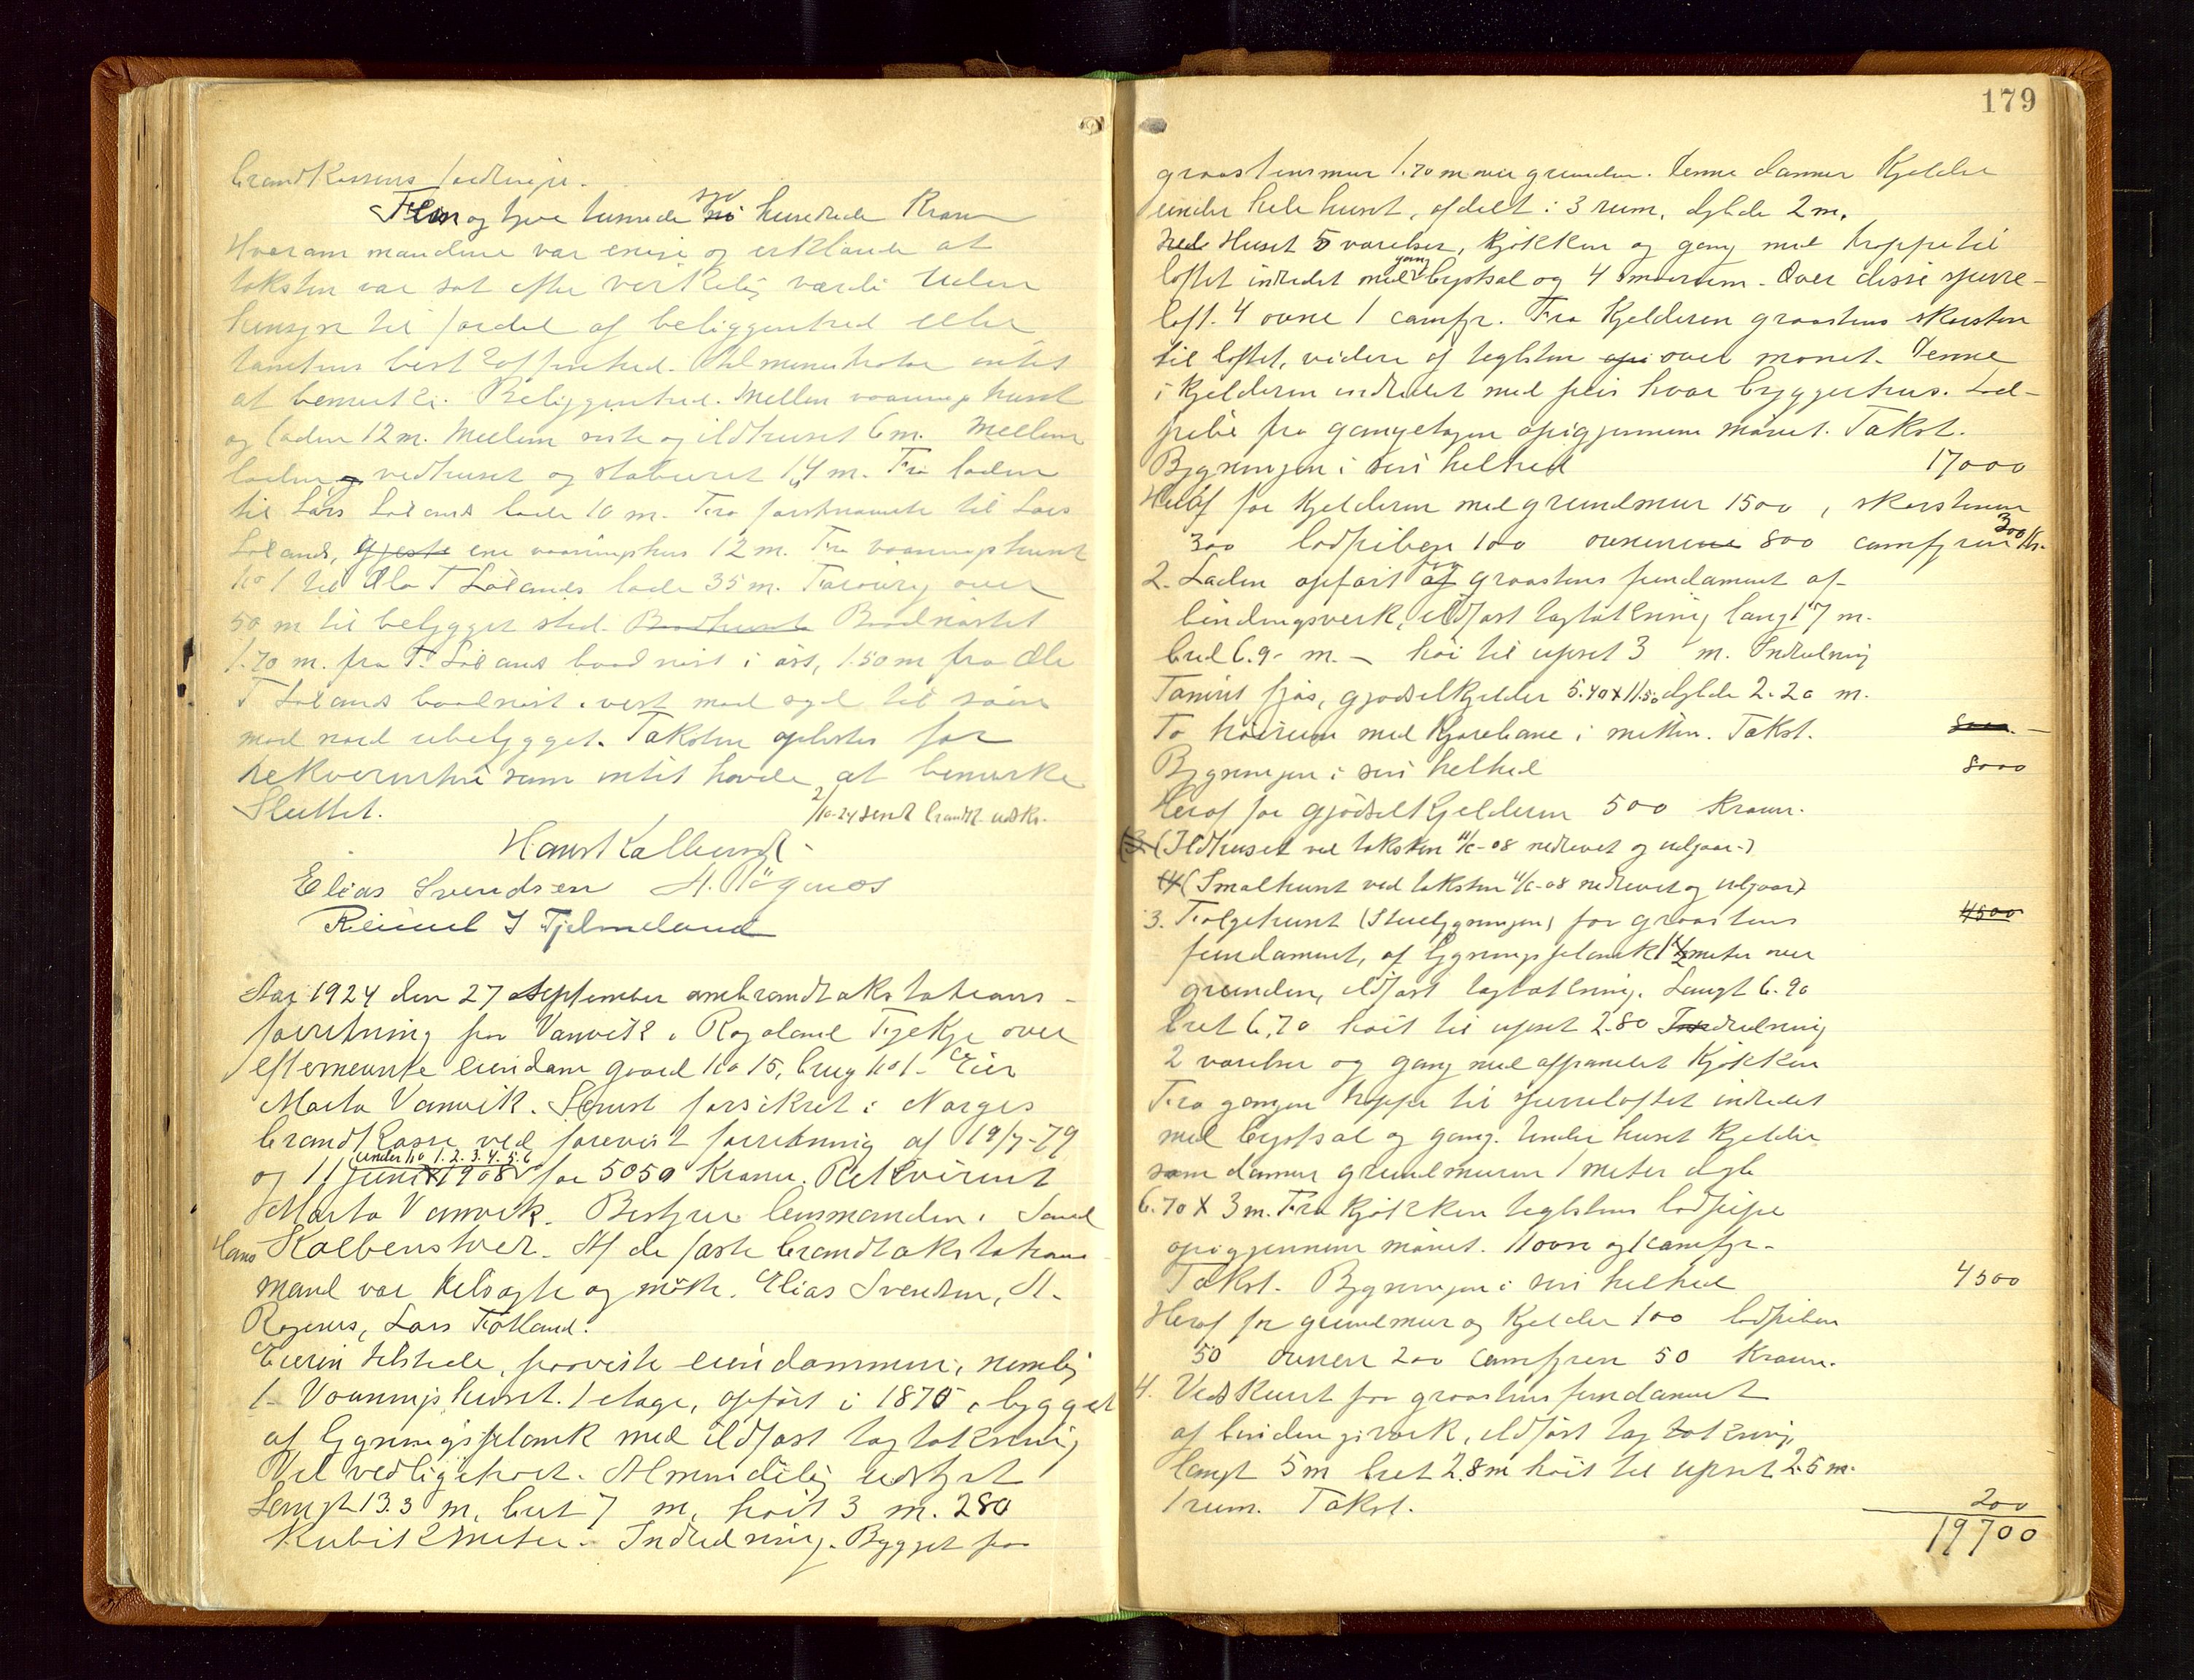 brandkassens
Fem og tyve tusinde syv hundrede Kroner
Hverom mændene var enige og erklærede at
taksten var sat efter virkelig værdi uden
hensyn til fordel af beliggenhed eller
tomtens beskaffenhed. Administrator intet
at bemerke. Beliggenhed. Mellem vaaningshuset
og laden 12 m. Mellem siste og ildhuset 6 m. Mellem
laden og vedhuset og stabburet 14 m. Fra laden
til Lars Løland lade 10 m. Fra førstnævnte til Lars
Lølands, Gjeste ene vaaningshus 12 m. Fra vaaningshuset
No 1 til Ola T Lølands lade 35 m. Forøvrig over
50 m til bebygget sted. Baadhuset Baadnøstet
1.70 m. fra T. Løland baadnøst i øst, 1.50 m fra Ole
T Løland baadnøst i vest mod syd til søen
mod nord ubebygget. Taksten oplæstes for
rekvirenten som intet havde at bemerke
Sluttet.
2/10-24 sendt brandt. udskr.
Hans Kolbenst
Elias Svendsen A. Rögenes
Reinert I Tjelmeland
Aar 1924 den 27 September ambrandtakstations-
forretning paa Vanvik i Rogaland Fylke over
efternevnte eiendom gaard No 15, brug No 1. Eier
Marta Vanvik. Senest forsikret i Norges
brandkasse ved forevist forretning af 19/7-79
under No 1. 2. 3. 4. 5. 6
og 11 juni 1908 for 5050 Kroner. Rekvirent
Marta Vanvik. Bestyrer lensmanden i Sand
Hans Kolbenstvedt. Af de faste brandtakstations
mænd var tilsagte og møtte. Elias Svendsen, A.
Røgenes, Lars Fatland.
Eieren tilstede, paaviste eiendommen, nemlig
1. Vaaningshuset. 1 etage, opført i 1875, bygget
af bygningsplank med ildfast tagtækning
Vel vedligeholdt. Almindelig udstyrt
Langt 13.3 m, bret 7 m, høit 3 m. 280
Kubikkmeter. Indredning. Bygget paa
179
graastensmur 1.70 m over grunden. Denne danner Kjelder
under hele huset, afdelt i 3 rum, dybde 2 m.
Huset 5 værelser, kjøkken og gang med trappe til
loftet indredet med gang bystsal og 4 smaarum. Over disse sperre-
loft. 4 ovne 1 camfyr. Fra Kjelderen graastens skorsten
til loftet, videre af teglsten op over mønet. Denne
i Kjelderen indredet med peis hvor bryggerhus. Lod-
pibe fra gangetagen opigjennem mønet. Takst.
Bygningen i sin helhed 17000
Heraf for Kjelderen med grundmur 1500, skorstenen
300 lodpiben 100 ovnene 800 camfyren 300 Kr.
2. Laden opført paa graastens fundament af
bindingsverk, ildfast tagtækning langt 17 m.
bred 6.90 m. høi til upset 3 m. Indredning
Tømret fjøs, gjødselkjelder 5.40 x 11.50 dybde 2.20 m.
To høirum med kjørebane i midten. Takst. 8000
Bygningen i sin helhed 8000
Heraf for gjødselkjelderen 500 Kroner.
(3. (Ildhuset ved taksten 11/6-08 nedrevet og utgaar.)
(4 (Smalhuset ved taksten 11/6-08 nedrevet og utgaar)
3. Følgehuset (Stuebygningen) paa graastens 4500
fundament, af bygningsplank 1 1/2 meter over
grunden, ildfast tagtækning. Langt 6.90
bret 6.70 høit til upset 2.80 Indredning
2 værelser og gang med afpanelet Kjøkken
Fra gangen trappe til sperreloftet indredet
med bystsal og gang. Under huset Kjelder
som danner grundmuren 1 meter dyb
6.70 X 3 m. Fra kjøkken teglstens lodpipe
opigjennem mønet. 1 ovn og 1 camfyr.
Takst. Bygningen i sin helhed 4500
Heraf for grundmur og Kjelder 100 lodpiben
50 ovnen 200 camfyren 50 Kroner.
4. Vedskuret paa graastens fundament
af bindingsverk, ildfast tagtækning,
langt 5 m bret 2.8 m høit til upset 2.5 m.
1 rum. Takst. 200
19700